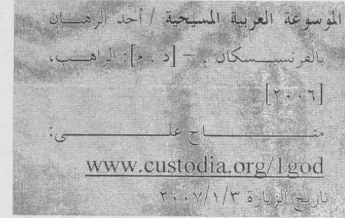 الموسوعة العربية المسيحية / أحد الرهبان
بالفرنسيسكان . – [د . م]: الراهب،
[٢٠٠٦]
متاح على:
www.custodia.org/1god
تاريخ الزيارة ٢٠٠٧/١/٣